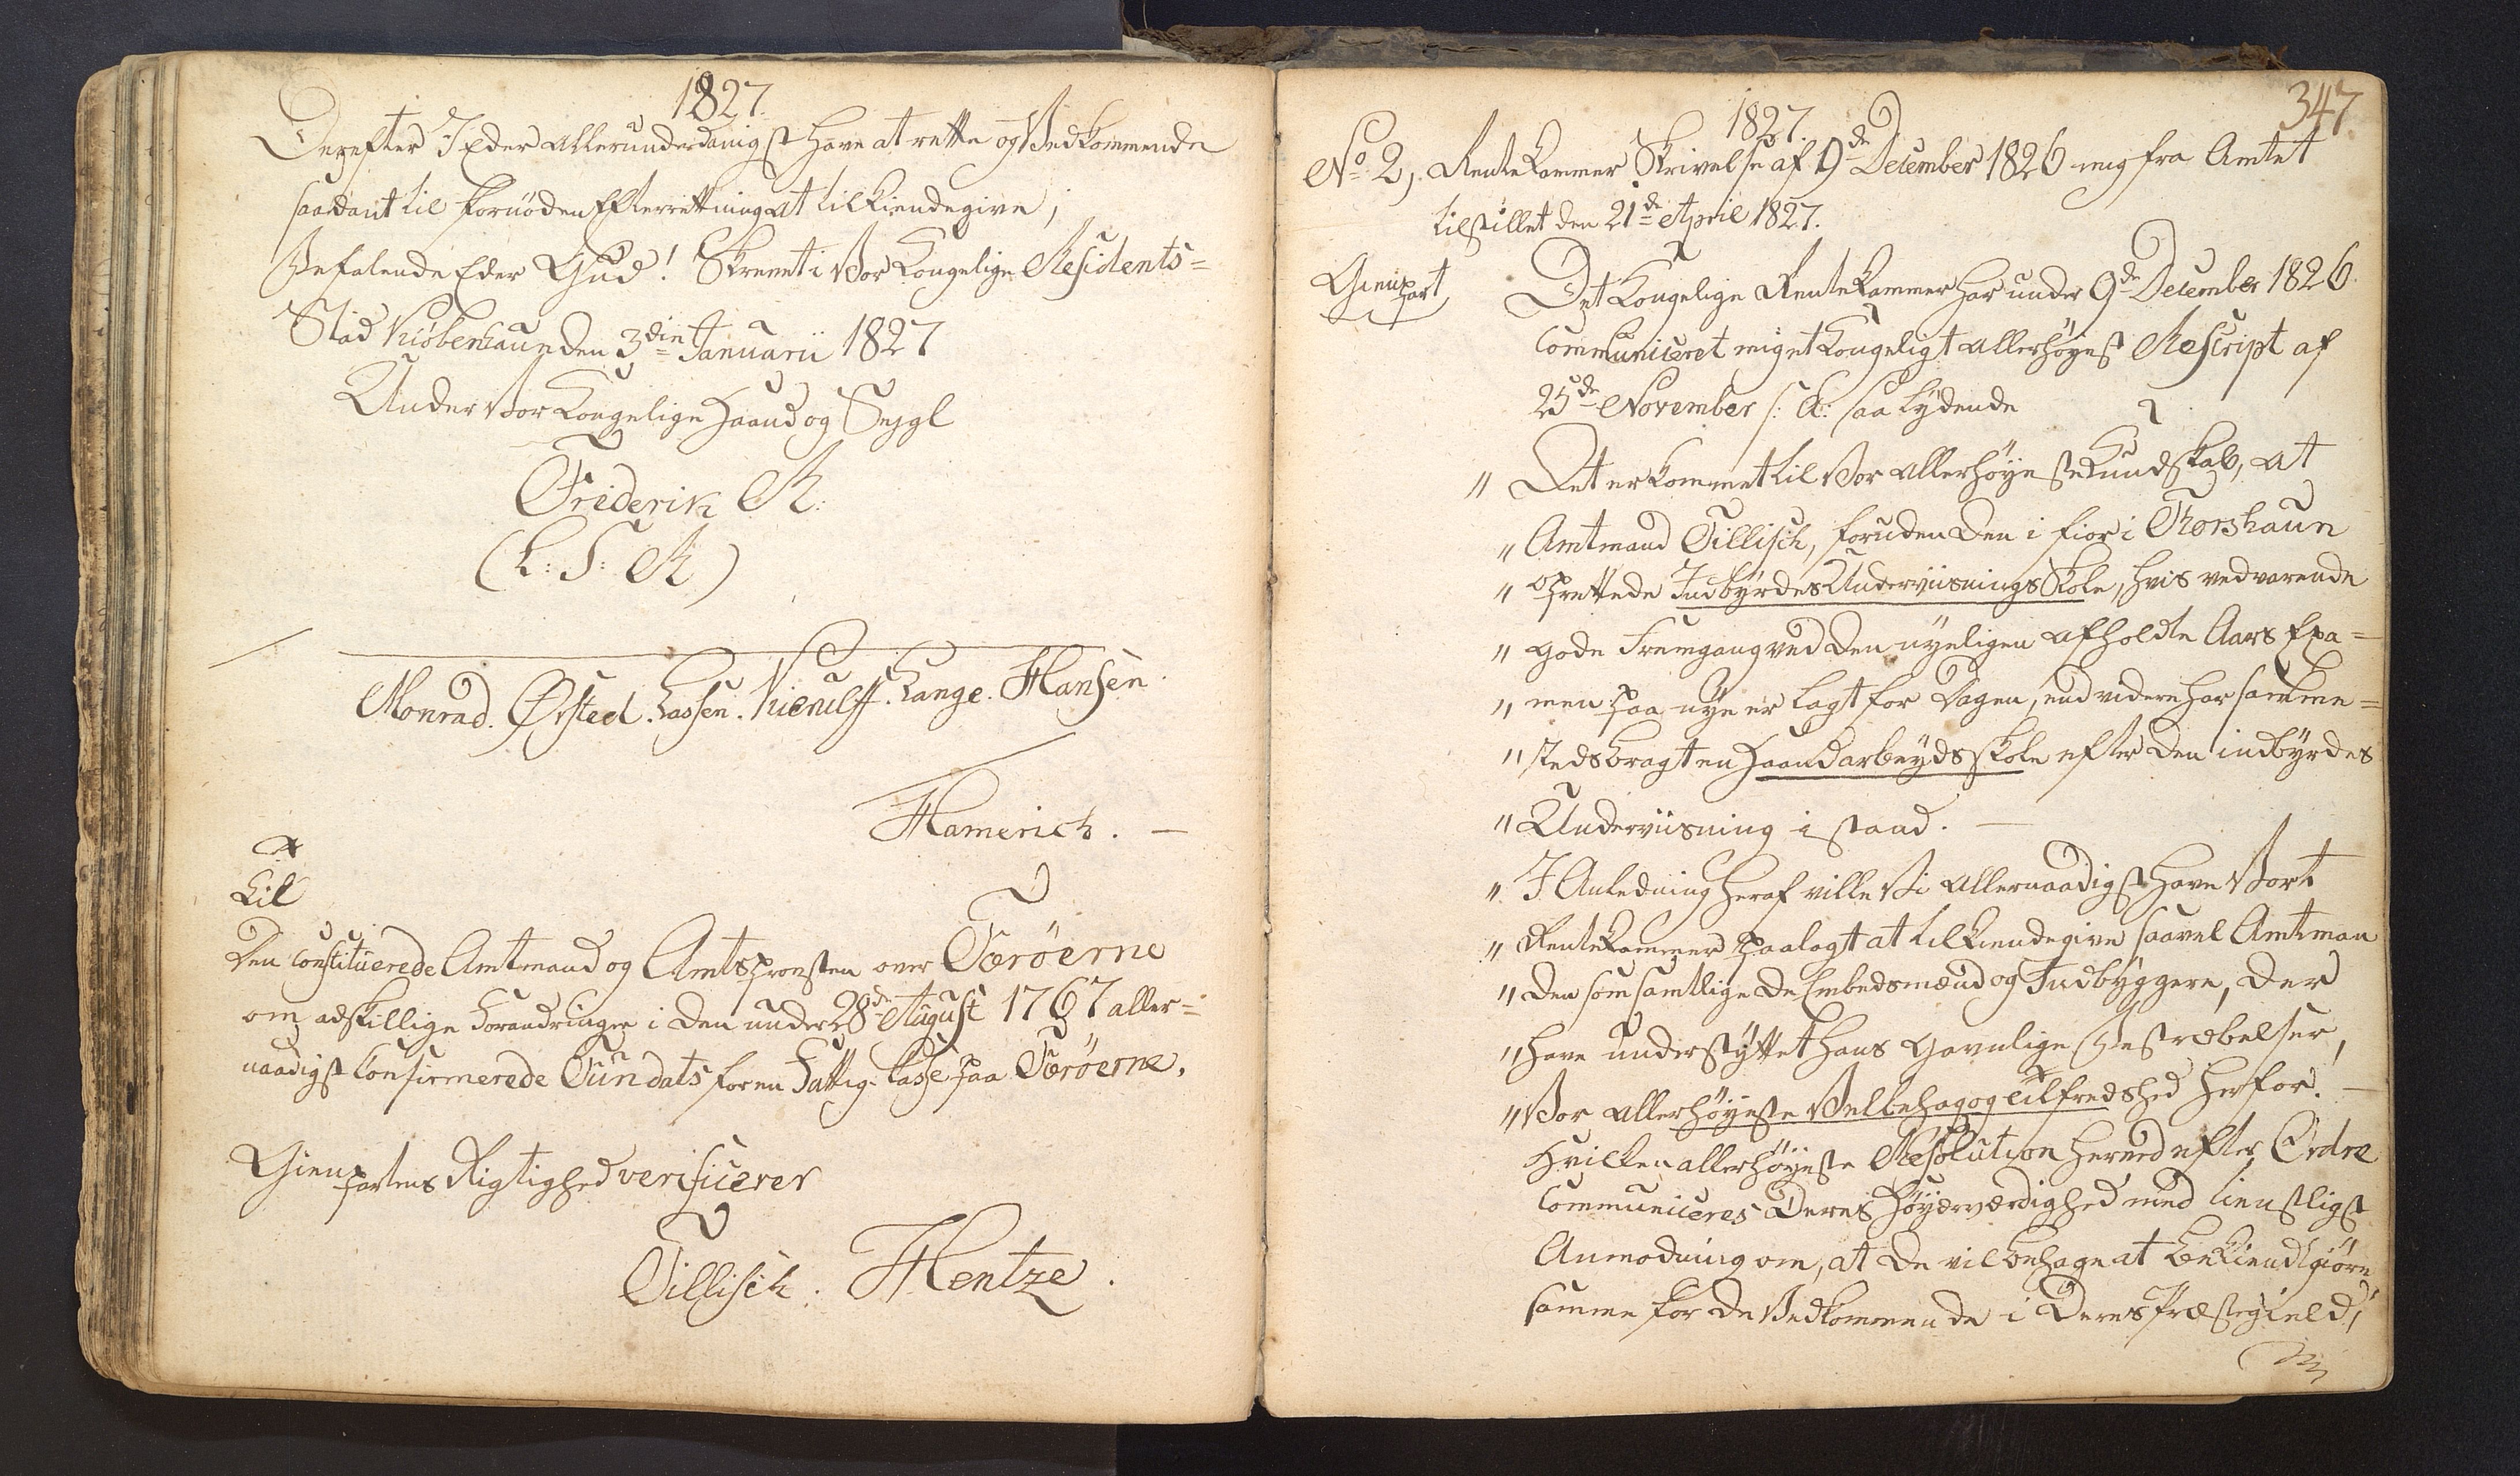 1827.
Derefter I Eder allerunderdanigst have at rette og Vedkommende
saadant til fornöden Efterretning at tilkiendegive,
Befalende Eder Gud! Skrevet i Vor Kongelige Residents=
Stad Kiöbenhaun den 3die Januarii 1827
Under Vor Kongelige Haand og Sejgl
Friderik R.
(L: S: R)
Monrad. Ørsted. Lassen. Kierulff. Lange. Hansen.
Hamerich. —
Til
Den Constituerede Amtmand og Amtsprovsten over Færöerne
om adskillige Forandringer i den under 28de August 1767 aller=
naadigst Confirmerede Fundats for en Fattig-Casse paa Færöerne.
Gienpartens Rigtighed verificerer
Tillisch. Hentze.
347.
1827.
No 2, RenteKammer Skrivelse af 9de December 1826 mig fra Amtet
tilstillet den 21de April 1827.
Gienpart
Det Kongelige RenteKammer har under 9de December 1826
Communiceret mig et Kongeligt allerhöyest Rescript af
25de November s: A: saa lydende
" Det er kommet til Vor allerhöyeste Kundskab, at
" Amtmand Tillisch, foruden den i fior i Thorshaun
" oprettede Indbyrdes UnderviisningsSkole, hvis vedvarende
" gode Fremgang ved den nyeligen afholdte Aars Exa=
" men paa nye er lagt for Dagen, end videre har samme=
" steds bragt en Haandarbeydsskole efter den indbyrdes
" Underviisning i stand. —
" I Anledning heraf ville Vi allernaadigst have Vort
" RenteKammer paalagt at tilkiendegive saavel Amtman
" den som samtlige de Embedsmænd og Indbyggere, der
" have understyttet hans gavnlige Bestræbelser,
" Vor allerhöyeste Velbehag og Tilfredshed herfor. —
Hvilken allerhöyeste Resolution herved efter Ordre
Communiceres Deres Höyærværdighed med tienstligst
Anmodning om, at De vil behage at bekiendtgiöre
samme for de Vedkommende i Deres Præstegield,